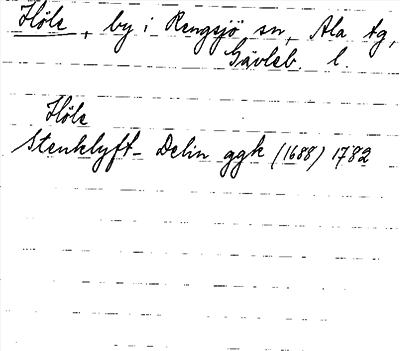 Höle, by i Rengsjö sn, Ala tg,
Gävleb. l.
Höle
Stenklyft- Delin ggk (1688) 1782